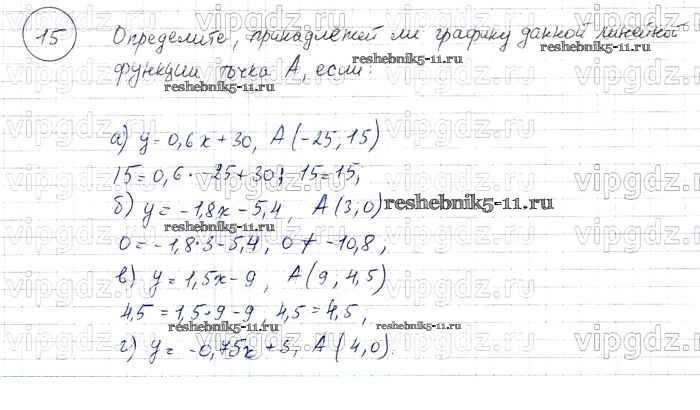 15 Определите, принадлежит ли графику данной линейной
функции точка А, если:
а) y = 0,6x + 30, А (-25, 15)
15 = 0,6 · -25 + 30; 15 = 15,
б) y = -1,8x - 5,4, А (3,0)
0 = -1,8 · 3 - 5,4, 0 ≠ -10,8,
в) y = 1,5x - 9, А (9, 4,5)
4,5 = 1,5 · 9 - 9, 4,5 = 4,5,
г) y = -0,75x + 3, А (4,0).
reshebnik5-11.ru
vipgdz.ru